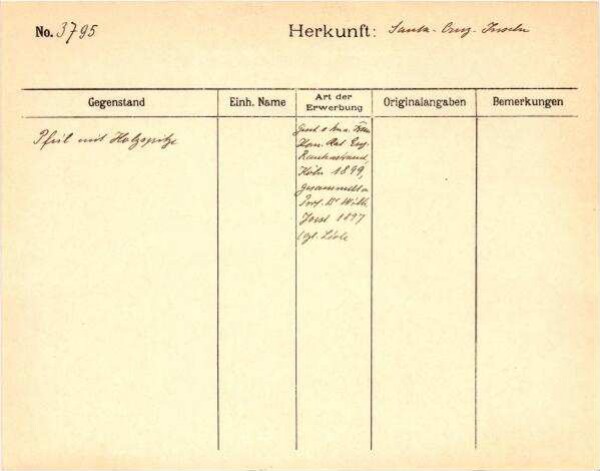 No. 3795
Herkunft: Santa-Cruz-Inseln
Gegenstand
Einh. Name
Art der Erwerbung
Originalangaben
Bemerkungen
Pfeil mit Holzspitze
Rautenstrauch,
Köln 1899,
gesammelt v.
Prof. Dr Wilh.
Joest 1897